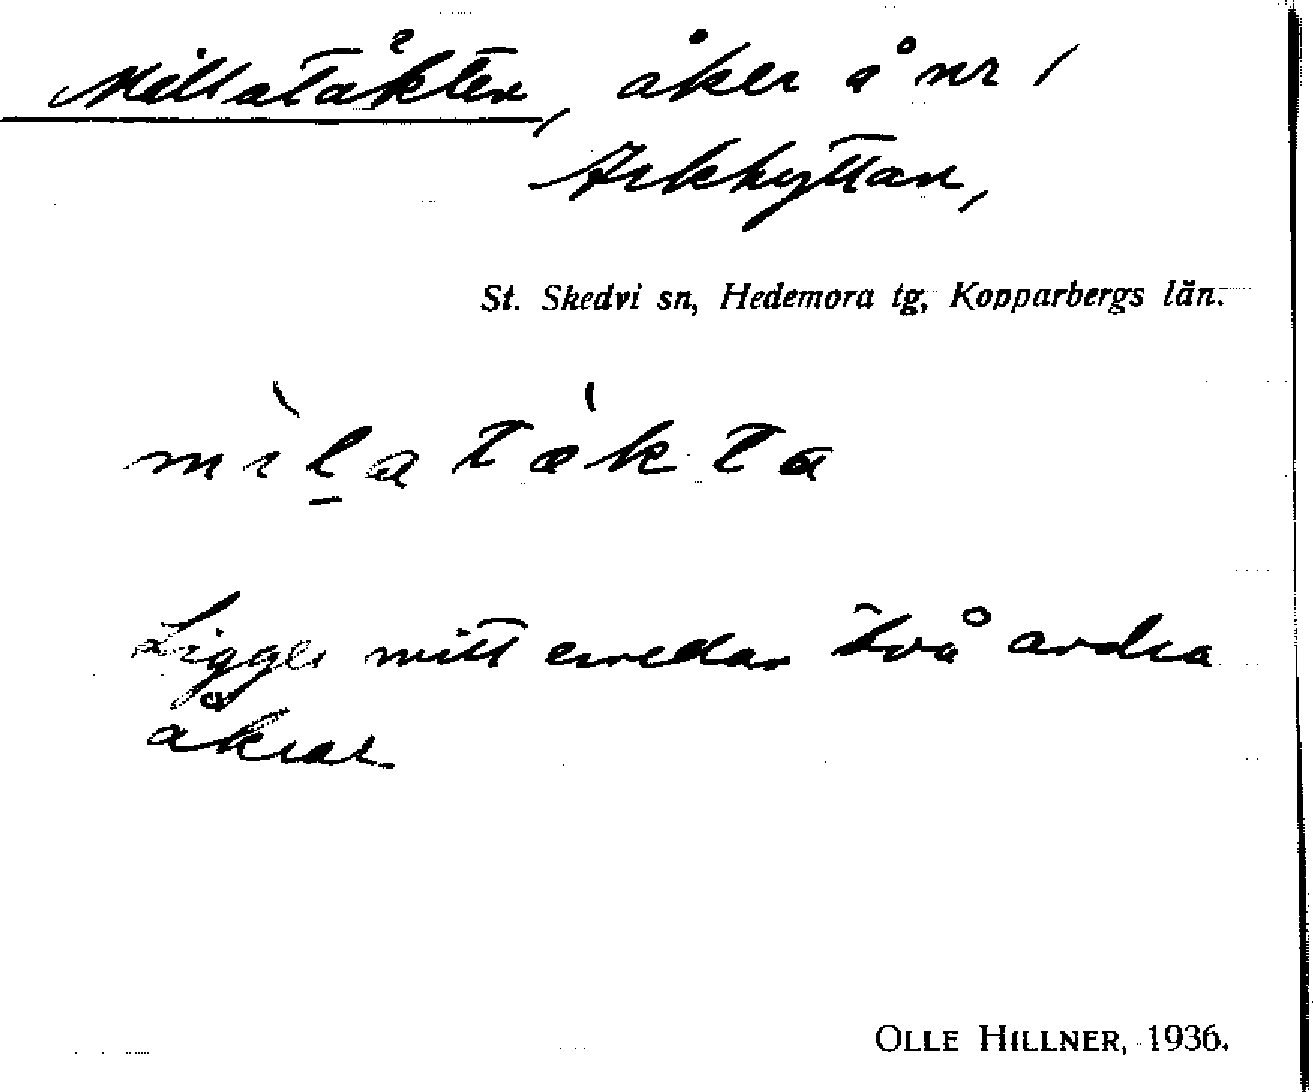 Millatäkten, åker å nr 1
Arkhyttan,
St. Skedvi sn, Hedemora tg, Kopparbergs län.
mìlatǽkta
Ligger mitt emellan två andra
åkrar
OLLE HILLNER, 1936.